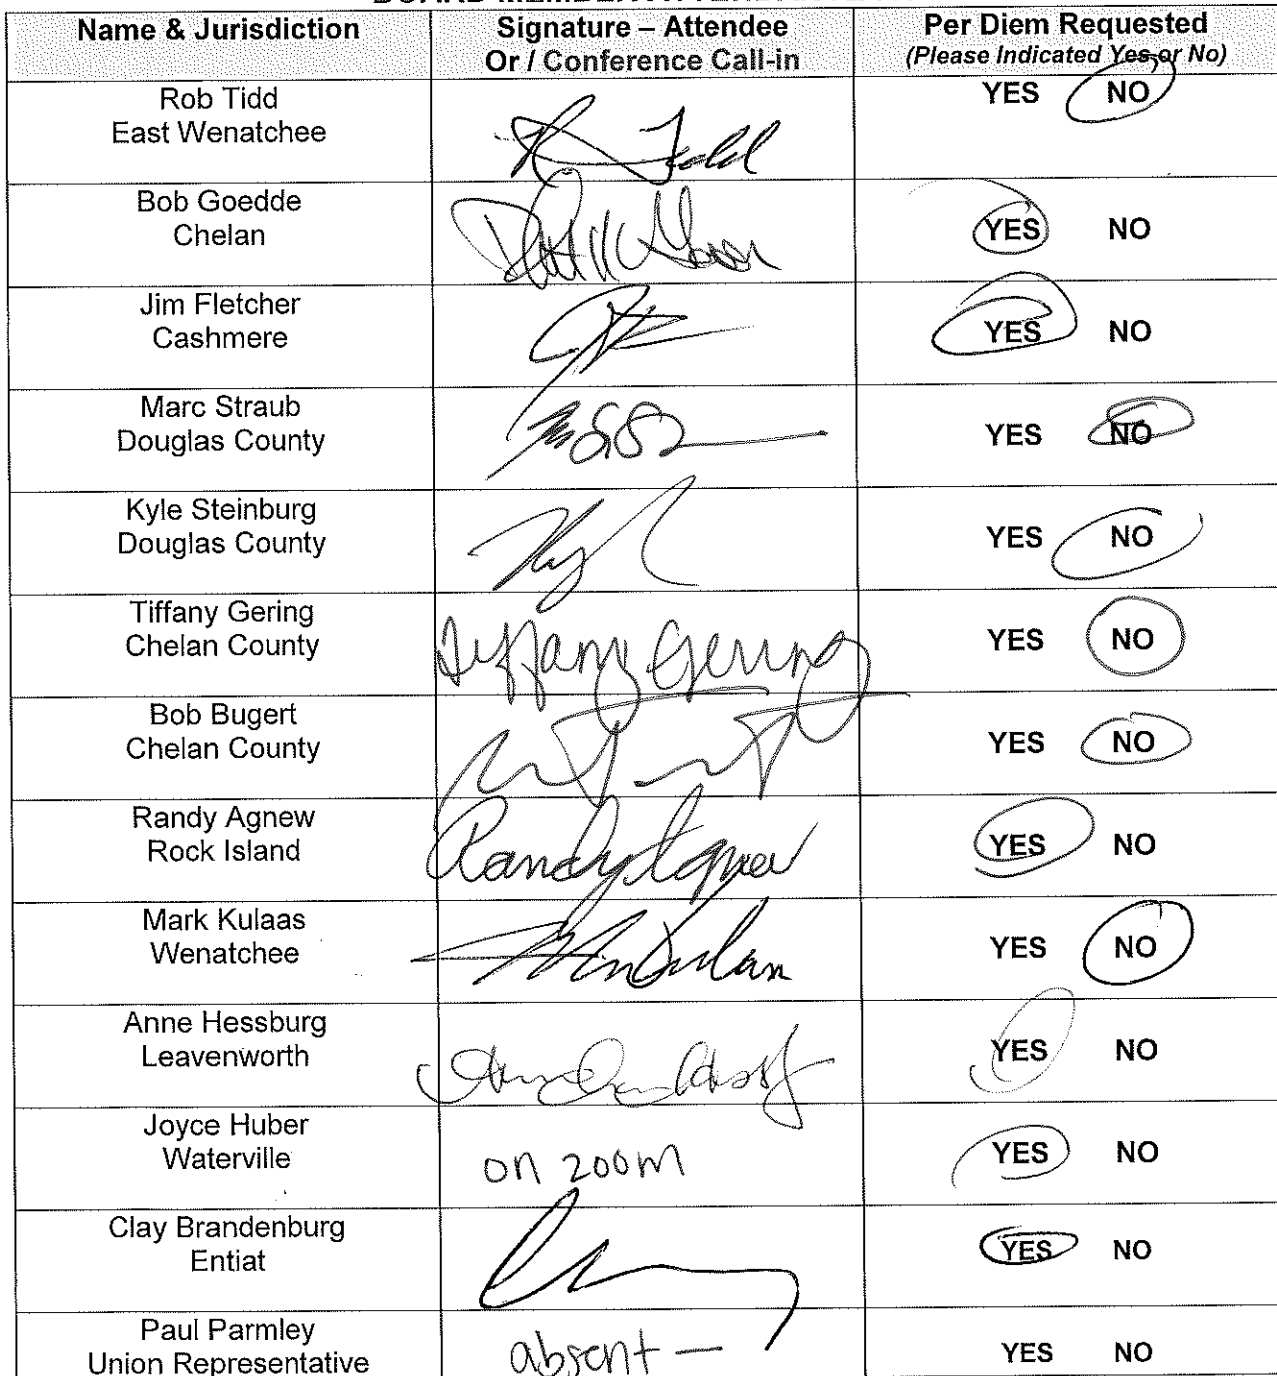 Name & Jurisdiction
Signature – Attendee
Or / Conference Call-in
Per Diem Requested
(Please Indicated Yes or No)
Rob Tidd
East Wenatchee
YES NO
Bob Goedde
Chelan
YES NO
Jim Fletcher
Cashmere
YES NO
Marc Straub
Douglas County
YES NO
Kyle Steinburg
Douglas County
YES NO
Tiffany Gering
Chelan County
Tiffany Gering
YES NO
Bob Bugert
Chelan County
YES NO
Randy Agnew
Rock Island
Randy Agnew
YES NO
Mark Kulaas
Wenatchee
YES NO
Anne Hessburg
Leavenworth
YES NO
Joyce Huber
Waterville
on zoom
YES NO
Clay Brandenburg
Entiat
YES NO
Paul Parmley
Union Representative
absent —
YES NO